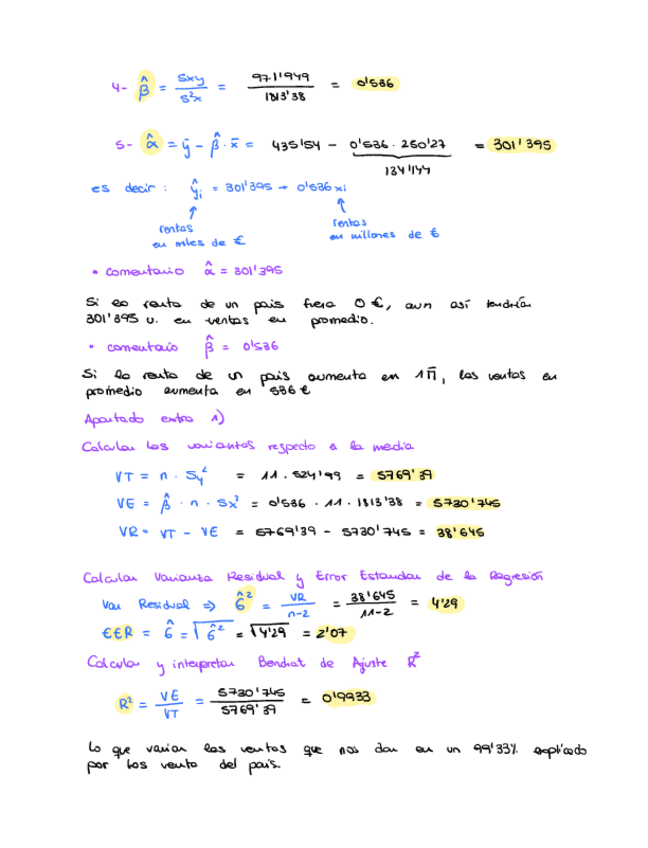 4- β̂ = Sxy / S²x = 971'949 / 1813'38 = 0'536
5- α̂ = ȳ - β̂ · x̄ = 435'54 - 0'536 · 250'27 = 301'395
134'144
es decir : ŷi = 301'395 + 0'536 xi
rentas en miles de €
rentas en millones de €
• comentario α̂ = 301'395
Si la renta de un pais fuera 0 €, aun así tendría
301'395 u. en ventas en promedio.
• comentario β̂ = 0'536
Si la renta de un pais aumenta en 1M, las ventas en
promedio aumenta en 536 €
Apartado extra 1)
Calcular las variantes respecto a la media
VT = n · Sy² = 11 · 524'49 = 5769'39
VE = β̂ · n · Sx² = 0'536 · 11 · 1813'38 = 5730'745
VR = VT - VE = 5769'39 - 5730'745 = 38'645
Calcular Varianza Residual y Error Estandar de la Regresión
Var Residual => σ̂² = VR / n-2 = 38'645 / 11-2 = 4'29
EER = σ̂ = √σ̂² = √4'29 = 2'07
Calcular y interpretar Bondad de Ajuste R²
R² = VE / VT = 5730'745 / 5769'39 = 0'9933
Lo que varian las ventas que nos dan en un 99'33% explicado
por las venta del pais.